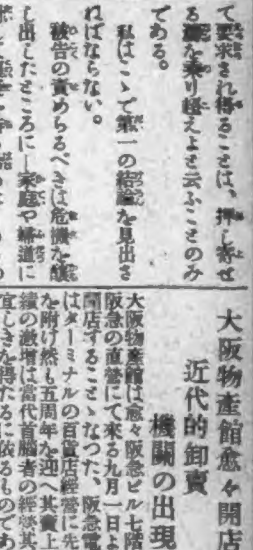 て要求され得ることは、押し寄せ
る潮を乗り超えよと云ふことのみ
である。
私はこゝで第一の結論を見出さ
ねばならない。
被告の責めらるべきは危機を醸
し出したところに—家庭や婦道に
大阪物産館愈々開店
近代的卸賣
機關の出現
大阪物産館は愈々阪急ビル七階
阪急の直營にて來る九月一日よ
開店することゝなつた、阪急電
はターミナルの百貨店經營に先
を附け然も五周年を迎へ其賣上
績の激増は當代首腦者の經營其
宜しきを得たるに依るものであ